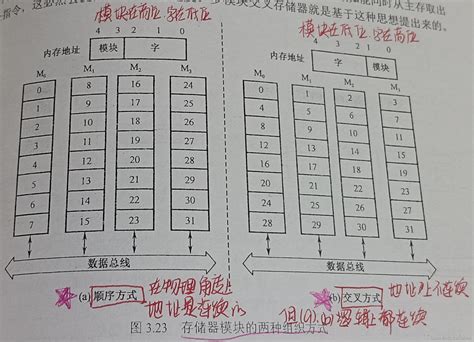 模块在高位 字在低位
模块在低位 字在高位
4 3 2 1 0
4 3 2 1 0
内存地址 模块 字
内存地址 字 模块
M0 M1 M2 M3
M0 M1 M2 M3
0 8 16 24
0 1 2 3
1 9 17 25
4 5 6 7
2 10 18 26
8 9 10 11
3 11 19 27
12 13 14 15
4 12 20 28
16 17 18 19
5 13 21 29
20 21 22 23
6 14 22 30
24 25 26 27
7 15 23 31
28 29 30 31
数据总线
数据总线
(a) 顺序方式 在物理角度上
地址是连续的
(b) 交叉方式 地址上不连续
但(a).(b)逻辑上都连续
图 3.23 存储器模块的两种组织方式